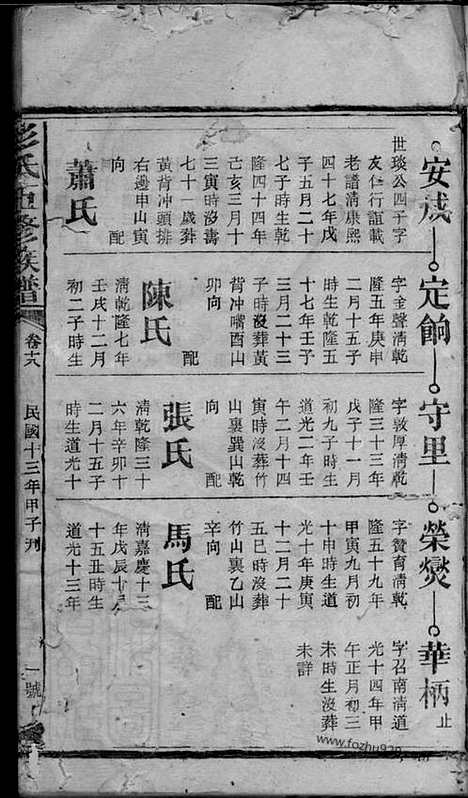 安茂
世琰公四子字
友仁行誼載
老譜清康熙
四十七年戊
子五月二十
七子時生乾
隆四十四年
己亥三月十
三寅時沒壽
七十一歲葬
黃背冲頭排
右邊申山寅
向
配
蕭氏
定餉
字金聲清乾
隆五年庚申
二月十五子
時生乾隆五
十七年壬子
三月二十三
子時沒葬黃
背冲嘴酉山
卯向
配
陳氏
清乾隆七年
壬戌十二月
初二子時生
守里
字敦厚清乾
隆三十三年
戊子十一月
初九子時生
道光二年壬
午二月十四
寅時沒葬竹
山裏巽山乾
向
配
張氏
清乾隆三十
六年辛卯十
二月十五子
時生道光十
榮爕
字贊育清乾
隆五十九年
甲寅九月初
十申時生道
光十年庚寅
十二月二十
五巳時沒葬
竹山裏乙山
辛向
配
馬氏
清嘉慶十三
年戊辰十月
十五丑時生
道光十三年
華柄
止
字召南清道
光十四年甲
午正月初三
未時生沒葬
未詳
彭氏五修族譜
卷十八
民國十三年甲子刋
一號
www.fozhu920.com